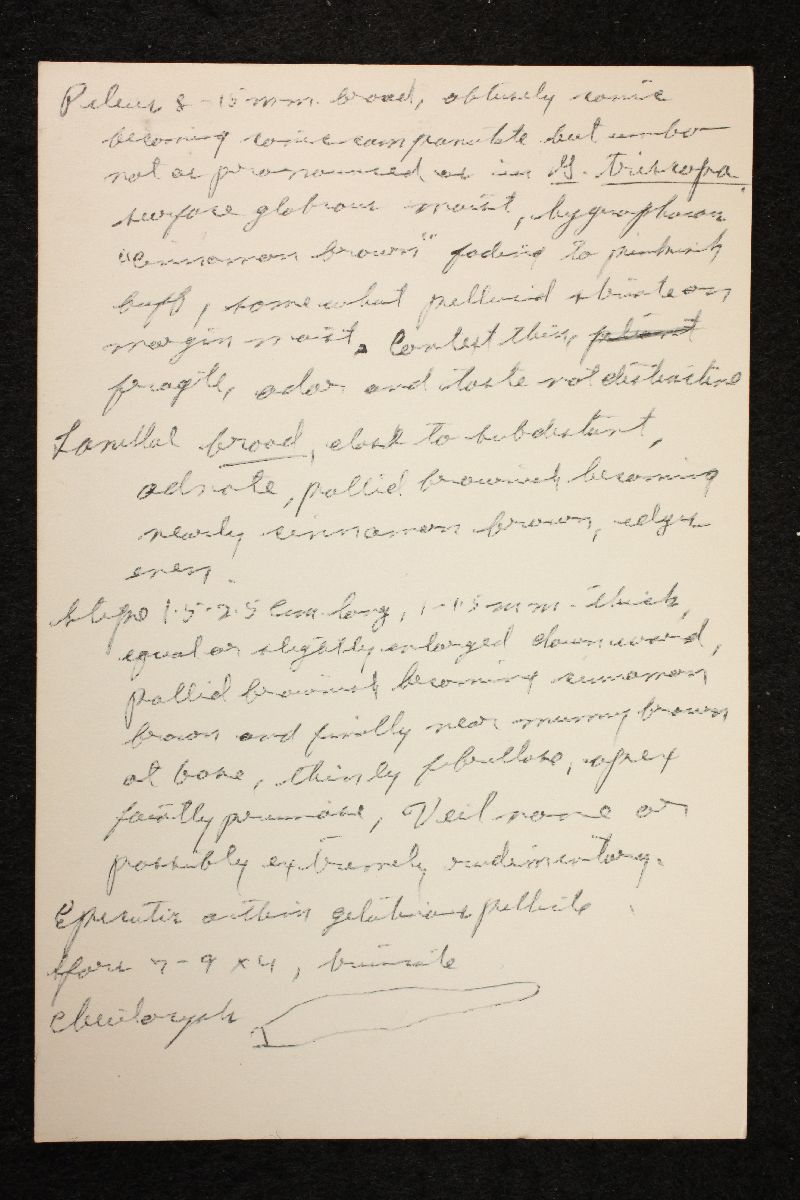 Pileus 8-15 mm. broad, obtusely conic
becoming conic campanulate but umbo
not as pronounced as in G. triscopa.
surface glabrous moist, hygrophanous
"Cinnamon brown" fading to pinkish
buff, somewhat pellucid striate on
margin moist. Context thin, pliant
fragile, odor and taste not distinctive
Lamellae broad, close to subdistant,
adnate, pallid brownish becoming
nearly cinnamon brown, edges
even.
Stipe 1.5-2.5 cm. long, 1-1.5 mm. thick,
equal or slightly enlarged downward,
pallid brownish becoming cinnamon
brown and finally near mummy brown
at base, thinly fibrillose, apex
faintly pruinose, Veil none or
possibly extremely rudimentary.
Epicutis a thin gelatinous pellicle
spores 7-9 x 4, truncate
cheilocysts